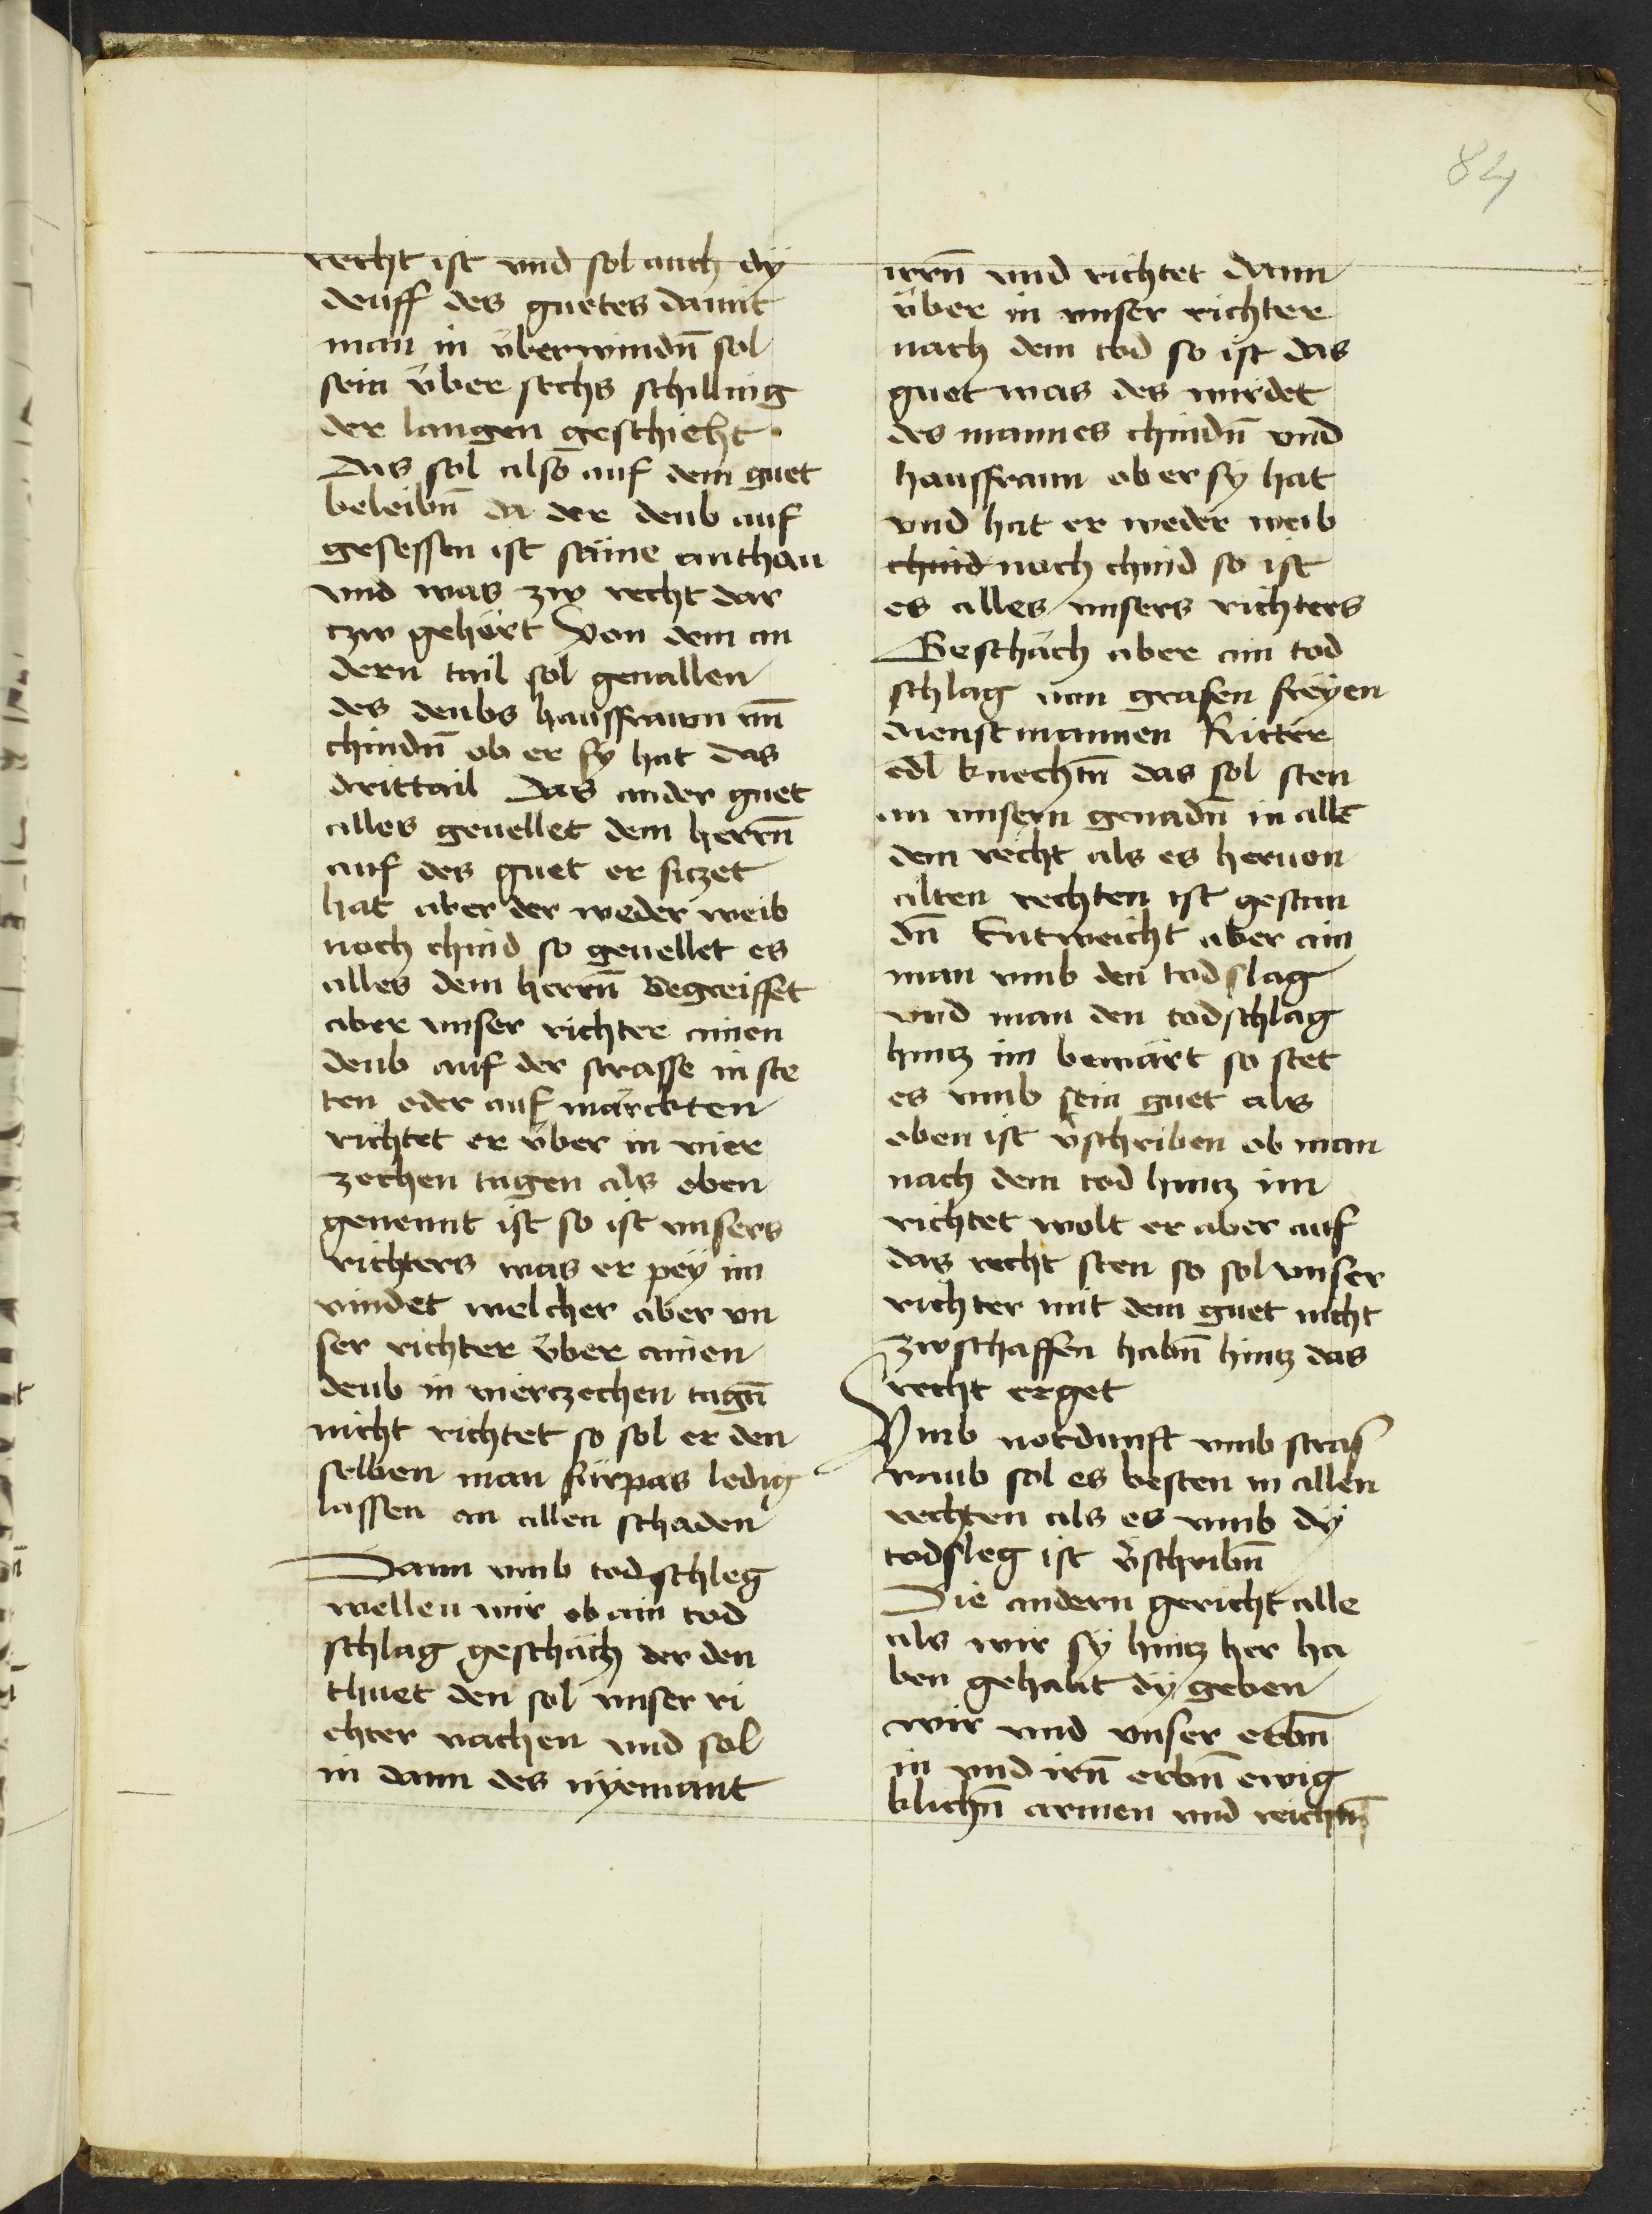 84
recht ist vnd sol auch dÿ
deuff des guetes damit
man in überwindn̄ sol
sein über sechs schilling
der langen geschieht.
Das sol also auf dem guet
beleibn̄ da der deub auf
gesessen ist
vnd was zw recht dar
czw gehört Von dem an
dern tail sol geuallen
des deubs hausfrawn vn̄
chindn̄ ob er sy hat das
drittail Das ander guet
alles geuellet dem herrn̄
auf des guet er siczet
hat aber der weder weib
noch chind so geuellet es
alles dem herrn̄ Begreiffet
aber vnser richter ainen
deub auf der strasse in ste
ten oder auf märckten
richtet er über in vier
zechen tagen als oben
genennt ist so ist vnsers
richters was er pey im
vindet welcher aber vn
ser richter über ainen
deub in vierczechen tagn̄
nicht richtet so sol er den
selben man fürpas ledig
lassen an allen schaden
Dann vmb todschleg
wellen wir ob ain tod
schlag geschäch der den
thuet den sol vnser ri
chter vachen vnd sol
in dann des nÿemant
irrn̄ vnd richtet dann
über in vnser richter
nach dem tod so ist das
guet was des wirdet
des mannes chindn̄ vnd
hausfraun ob er sÿ hat
vnd hat er weder weib
chind noch chind so ist
es alles vnsers richters
Geschäch aber ain tod
schlag von grafen freÿen
dienstmannen Ritter
edl knechtn̄ das sol sten
an vnsern genadn̄ in alle
dem recht als es heruon
alten rechten ist gestan
dn̄ Entweicht aber ain
man vmb den todslag
vnd man den todschlag
hincz im bewärt so stet
es vmb sein guet als
oben ist v̄schriben ob man
nach dem tod hincz im
richtet wolt er aber auf
das recht sten so sol vnser
richter mit dem guet nicht
zwschaffen habn̄ hincz das
recht erget
Vmb notdunft vmb stras
raub sol es besten in allen
rechten als es vmb dÿ
todsleg ist v̄schribn̄
Die andern gericht alle
als wir sÿ hincz her ha
ben gehabt dÿ geben
wir vnd vnser erbn̄
in vnd irn̄ erbn̄ ewig
klichn̄ armen vnd reichn̄